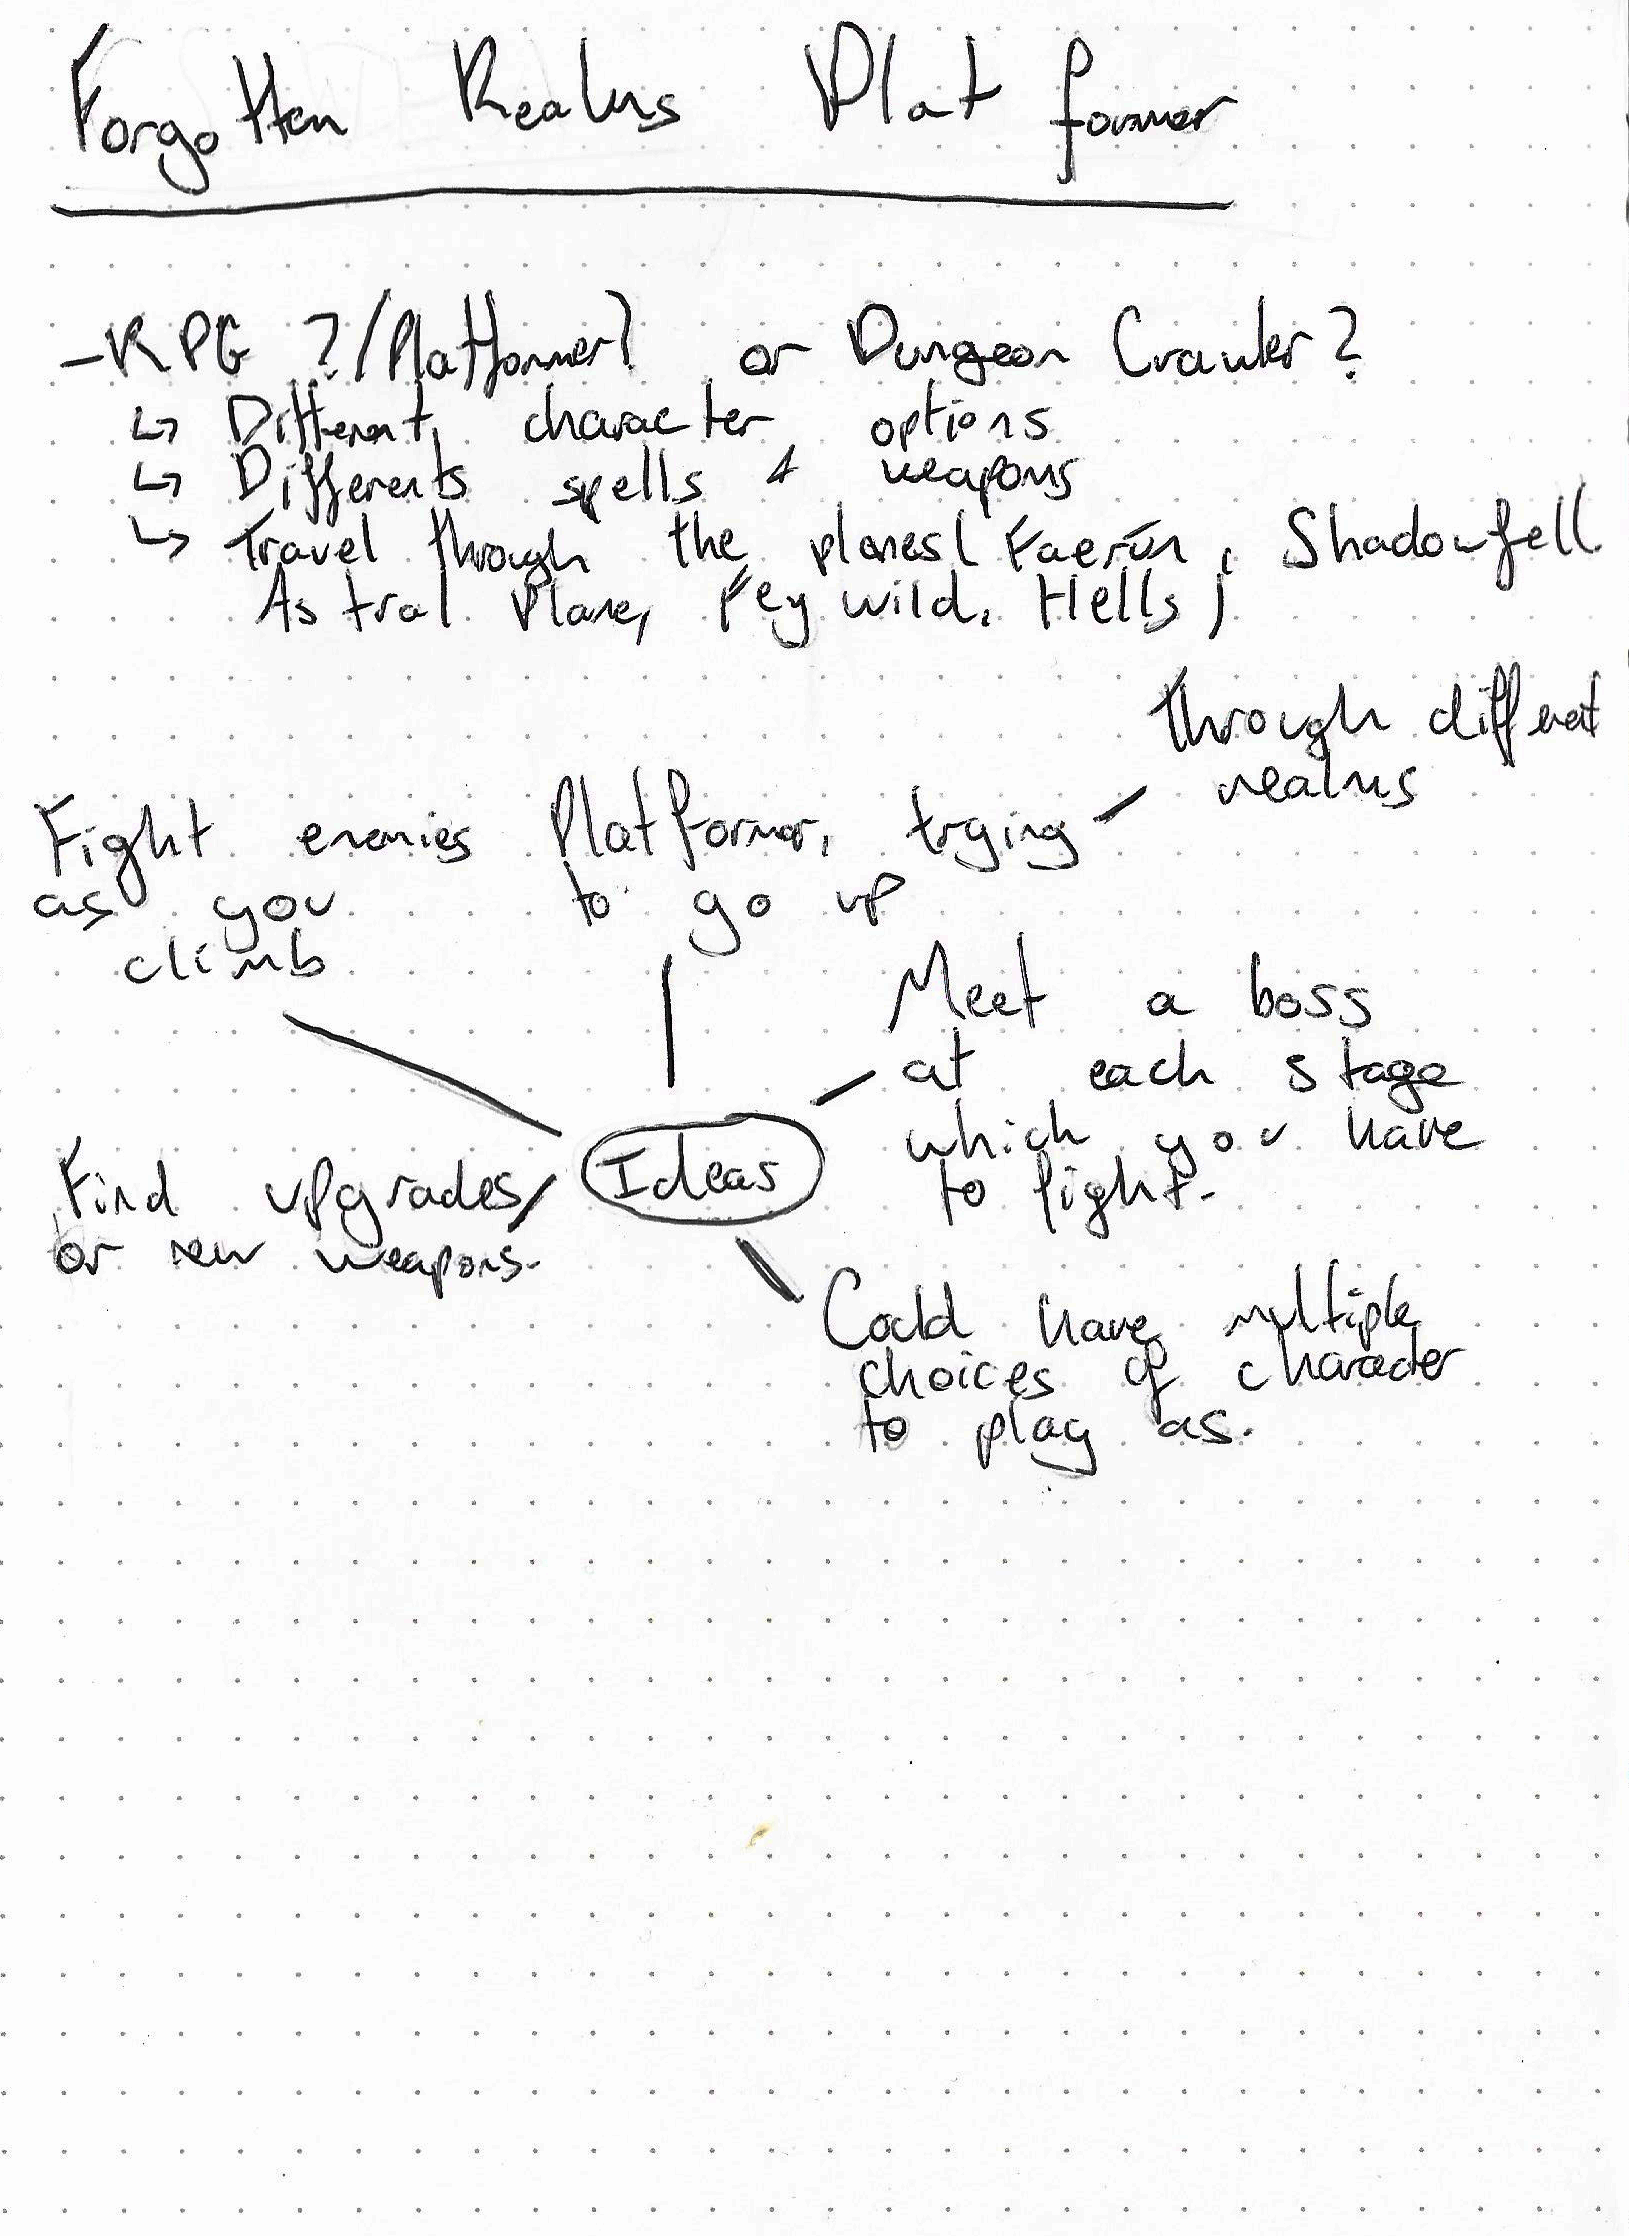 Forgotten Realms Platformer
-RPG ?/Platformer? or Dungeon Crawler?
↳ Different character options
↳ Differents spells & weapons
↳ Travel through the planes (Faerûn, Shadowfell
Astral Plane, Feywild, Hells)
through different
realms
Platformer, trying
to go up
Fight enemies
as you
climb
Meet a boss
at each stage
which you have
to fight.
Ideas
Find upgrades
or new weapons.
Could have multiple
choices of character
to play as.